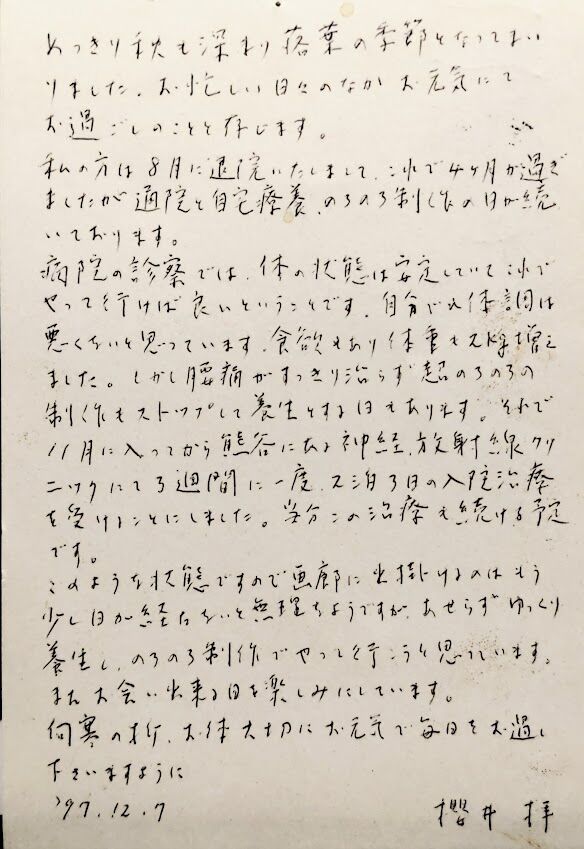 めっきり秋も深まり落葉の季節となってまい
りました。お忙しい日々のなかお元気にて
お過ごしのことと存じます。
私の方は8月に退院いたしまして、これで4ヶ月が過ぎ
ましたが通院と自宅療養、のろのろ制作の日が続
いております。
病院の診察では、体の状態は安定していてこれで
やって行けば良いということです。自分でも体調は
悪くないと思っています。食欲もあり体重も2kg増え
ました。しかし腰痛がすっきり治らず超のろのろの
制作もストップして養生とする日もあります。それで
11月に入ってから熊谷にある神経、放射線クリ
ニックにて3週間に一度、2泊3日の入院治療
を受けることにしました。当分この治療も続ける予定
です。
このような状態ですので画廊に出掛けるのはもう
少し日が経たないと無理なようですが、あせらずゆっくり
養生し、のろのろ制作でやって行こうと思っています。
またお会い出来る日を楽しみにしています。
向寒の折、お体大切にお元気で毎日をお過し
下さいますように
'97.12.7 櫻井 拝